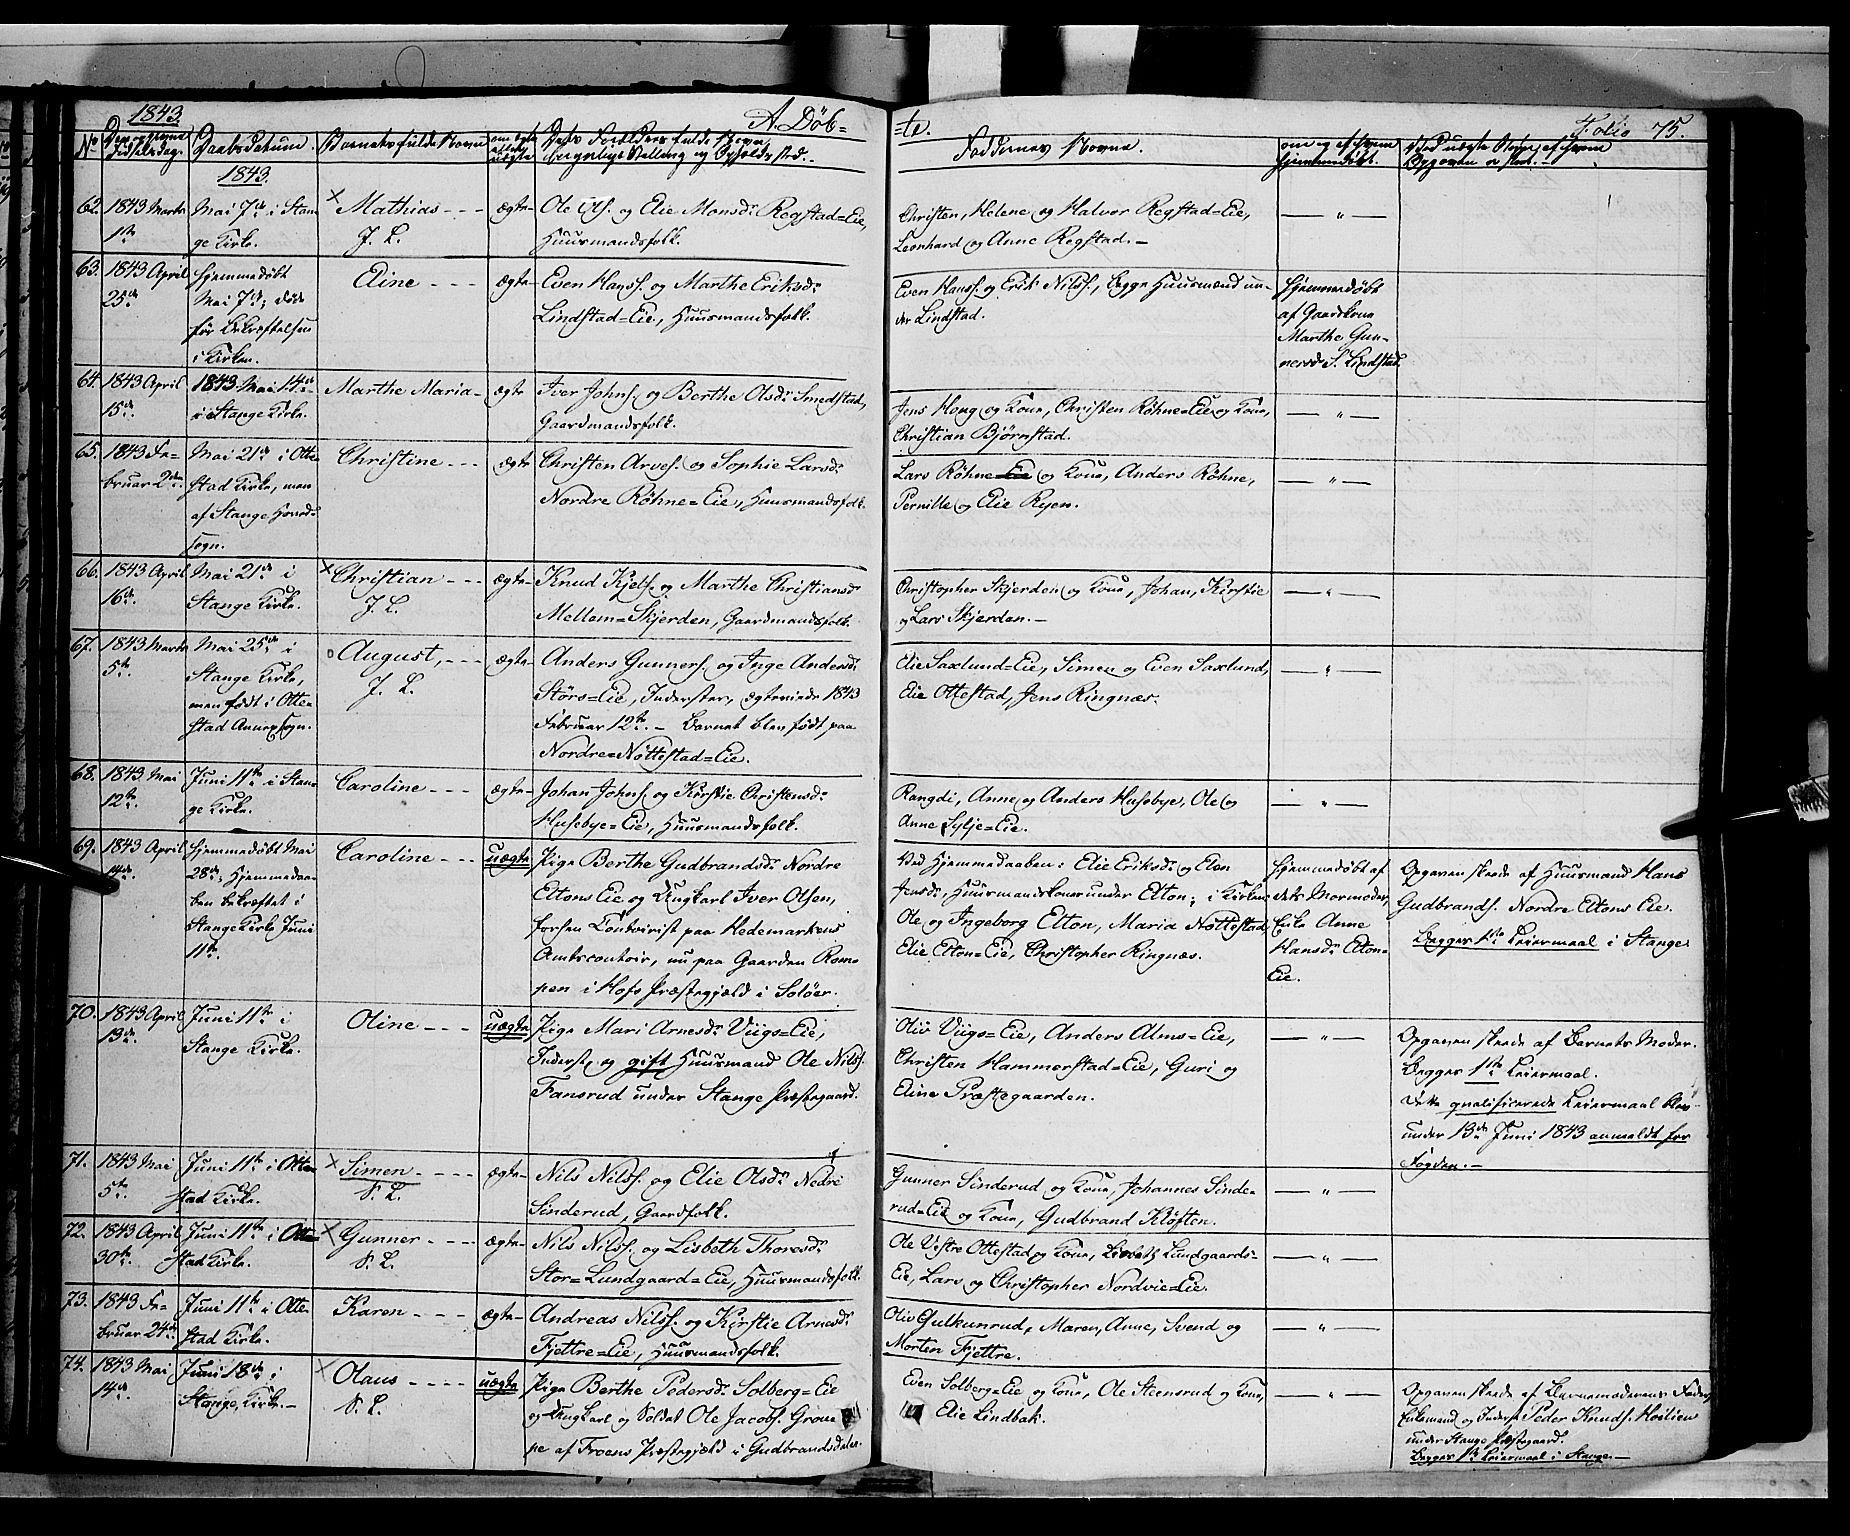 1843.
A. Døb=
=te.
Folio 75.
No
Daabsdatum.
Barnets fulde Navn
Faddernes Navne.
1843.
62. 1843 Marts 1ste
Mai 7de i Stange Kirke.
Mathias
J. L.
ægte
Ole Ols. og Elie Monsdr. Rogstad=Eie,
Huusmandsfolk.
Christen, Helene og Halvor Rogstad=Eie,
Leonhard og Anne Rogstad.
63. 1843 April 25de
hjemmedøbt
Mai 7de; døde
før Bekræftelsen
i Kirken.
Eline
ægte
Even Hanss. og Marthe Eriksdr.
Lindstad=Eie, Huusmandsfolk.
Even Hanss. og Erik Nilss., begge Huusmænd un=
der Lindstad.
Hjemmedøbt
af Gaardkone
Marthe Gun=
nersdr. S. Lindstad.
64. 1843 April 15de
1843 Mai 14de
i Stange Kirke.
Marthe Maria
ægte
Iver Johns. og Berthe Olsdr. Smedstad,
Gaardmandsfolk.
Jens Hong og Kone, Christen Røhne=Eie og Kone,
Christian Bjørnstad.
65. 1843 Fe=
bruar 2den
Mai 21de i Otte=
stad Kirke, men
af Stange Hoved=
sogn.
Christine
ægte
Christen Arves. og Sophie Larsdr.
Nordre Røhne=Eie, Huusmandsfolk.
Lars Røhne=Eie og Kone, Anders Røhne,
Pernille og Elie Ryen.
66. 1843 April 16de
Mai 21de i
Stange Kirke.
Christian
J. L.
ægte
Knud Kjels. og Marthe Christiansdr.
Mellem=Skjerden, Gaardmandsfolk.
Christopher Skjerden og Kone, Johan, Kirstie
og Lars Skjerden.
67. 1843 Marts 5te
Mai 25de i
Stange Kirke,
men født i Otte=
stad Annexsogn.
August,
J. L.
ægte
Anders Gunners. og Inge Andersdr.
Størs=Eie, Inderster, ægteviede 1843
Februar 12te. Barnet blev født paa
Nordre=Nøttestad=Eie.
Elie Saxlund=Eie, Simen og Even Saxlund,
Elie Ottestad, Jens Ringnæs.
68. 1843 Mai 12te
Juni 11te i Stan=
ge Kirke.
Caroline
ægte
Johan Johns. og Kirstie Christensdr.
Husebye=Eie, Huusmandsfolk.
Rangdi, Anne og Anders Husebye, Ole og
Anne Lylje=Eie.
69. 1843 April 14de
hjemmedøbt Mai
28de; Hjemmedaa=
ben bekræftet i
Stange Kirke Juni
11te.
Caroline
uægte
Pige Berthe Gudbrandsdr. Nordre
Ettons Eie og Ungkarl Iver Olsen,
forhen Contoirist paa Hedemarkens
Amtscontoir, nu paa Gaarden Rom=
pen i Hofs Præstegjæld i Soløer.
Ved Hjemmedaaben: Elie Eriksdr. og Elen
Jensdr. Huusmandskoner under Etton; i Kirken:
Ole og Ingeborg Etton, Maria Nøttestad,
Elie Etton=Eie, Christopher Ringnæs.
Hjemmedøbt af
dets Mormoder,
Enke Anne
Hansdr. Etton=
Eie.
Opgaven skede af Huusmand Hans
Gudbrands. Nordre Ettons Eie.
Begges 1ste Leiermaal i Stange.
70. 1843 April 13de
Juni 11te i
Stange Kirke.
Oline
uægte
Pige Mari Arnesdr. Viigs=Eie,
Inderst, og gift Huusmand Ole Nilss.
Fansrud under Stange Præstegaard.
Oliv Viigs=Eie, Anders Alms=Eie,
Christen Hammerstad=Eie, Guri og
Eline Præstegaarden.
Opgaven skede af Barnets Moder.
Begges 1ste Leiermaal.
Dette qualificerede Leiermaal blev
under 13de Juni 1843 anmeldt for
Fogden.
71. 1843 Mai 5te
Juni 11te i Otte=
stad Kirke.
Simen
S. L.
ægte
Nils Nilss. og Elie Olsdr. Nedre
Sinderud, Gaardfolk.
Gunner Sinderud og Kone, Johannes Sinde=
rud=Eie og Kone, Gudbrand Kløften.
72. 1843 April 30te
Juni 11te i Otte=
stad Kirke.
Gunner
S. L.
ægte
Nils Nilss. og Lisbeth Thoresdr.
Stor=Lundgaard=Eie, Huusmandsfolk.
Ole Vestre Ottestad og Kone, Lisbeth Lundgaards=
Eie, Lars og Christopher Nordvie=Eie.
73. 1843 Fe=
bruar 24de
Juni 11te i Otte=
stad Kirke.
Karen
ægte
Andreas Nilss. og Kirstie Arnesdr.
Fjettre=Eie, Huusmandsfolk.
Oliv Gulkunrud, Maren, Anne, Svend og
Morten Fjettre.
74. 1843 Mai 14de
Juni 18de i
Stange Kirke.
Olaus
S. L.
uægte
Pige Berthe Pedersdr. Solberg=Eie
og Ungkarl og Soldat Ole Jacobs. Grone
pe af Froens Præstegjæld i Gudbrandsdalen.
Even Solberg=Eie og Kone, Ole Steensrud og Kone,
Elie Lindbak.
Opgaven skede af Barnemoderens Fader,
Enkemand og Inderst Peder Knuds. Hoilien
under Stange Præstegaard.
Begges 1ste Leiermaal i Stange.